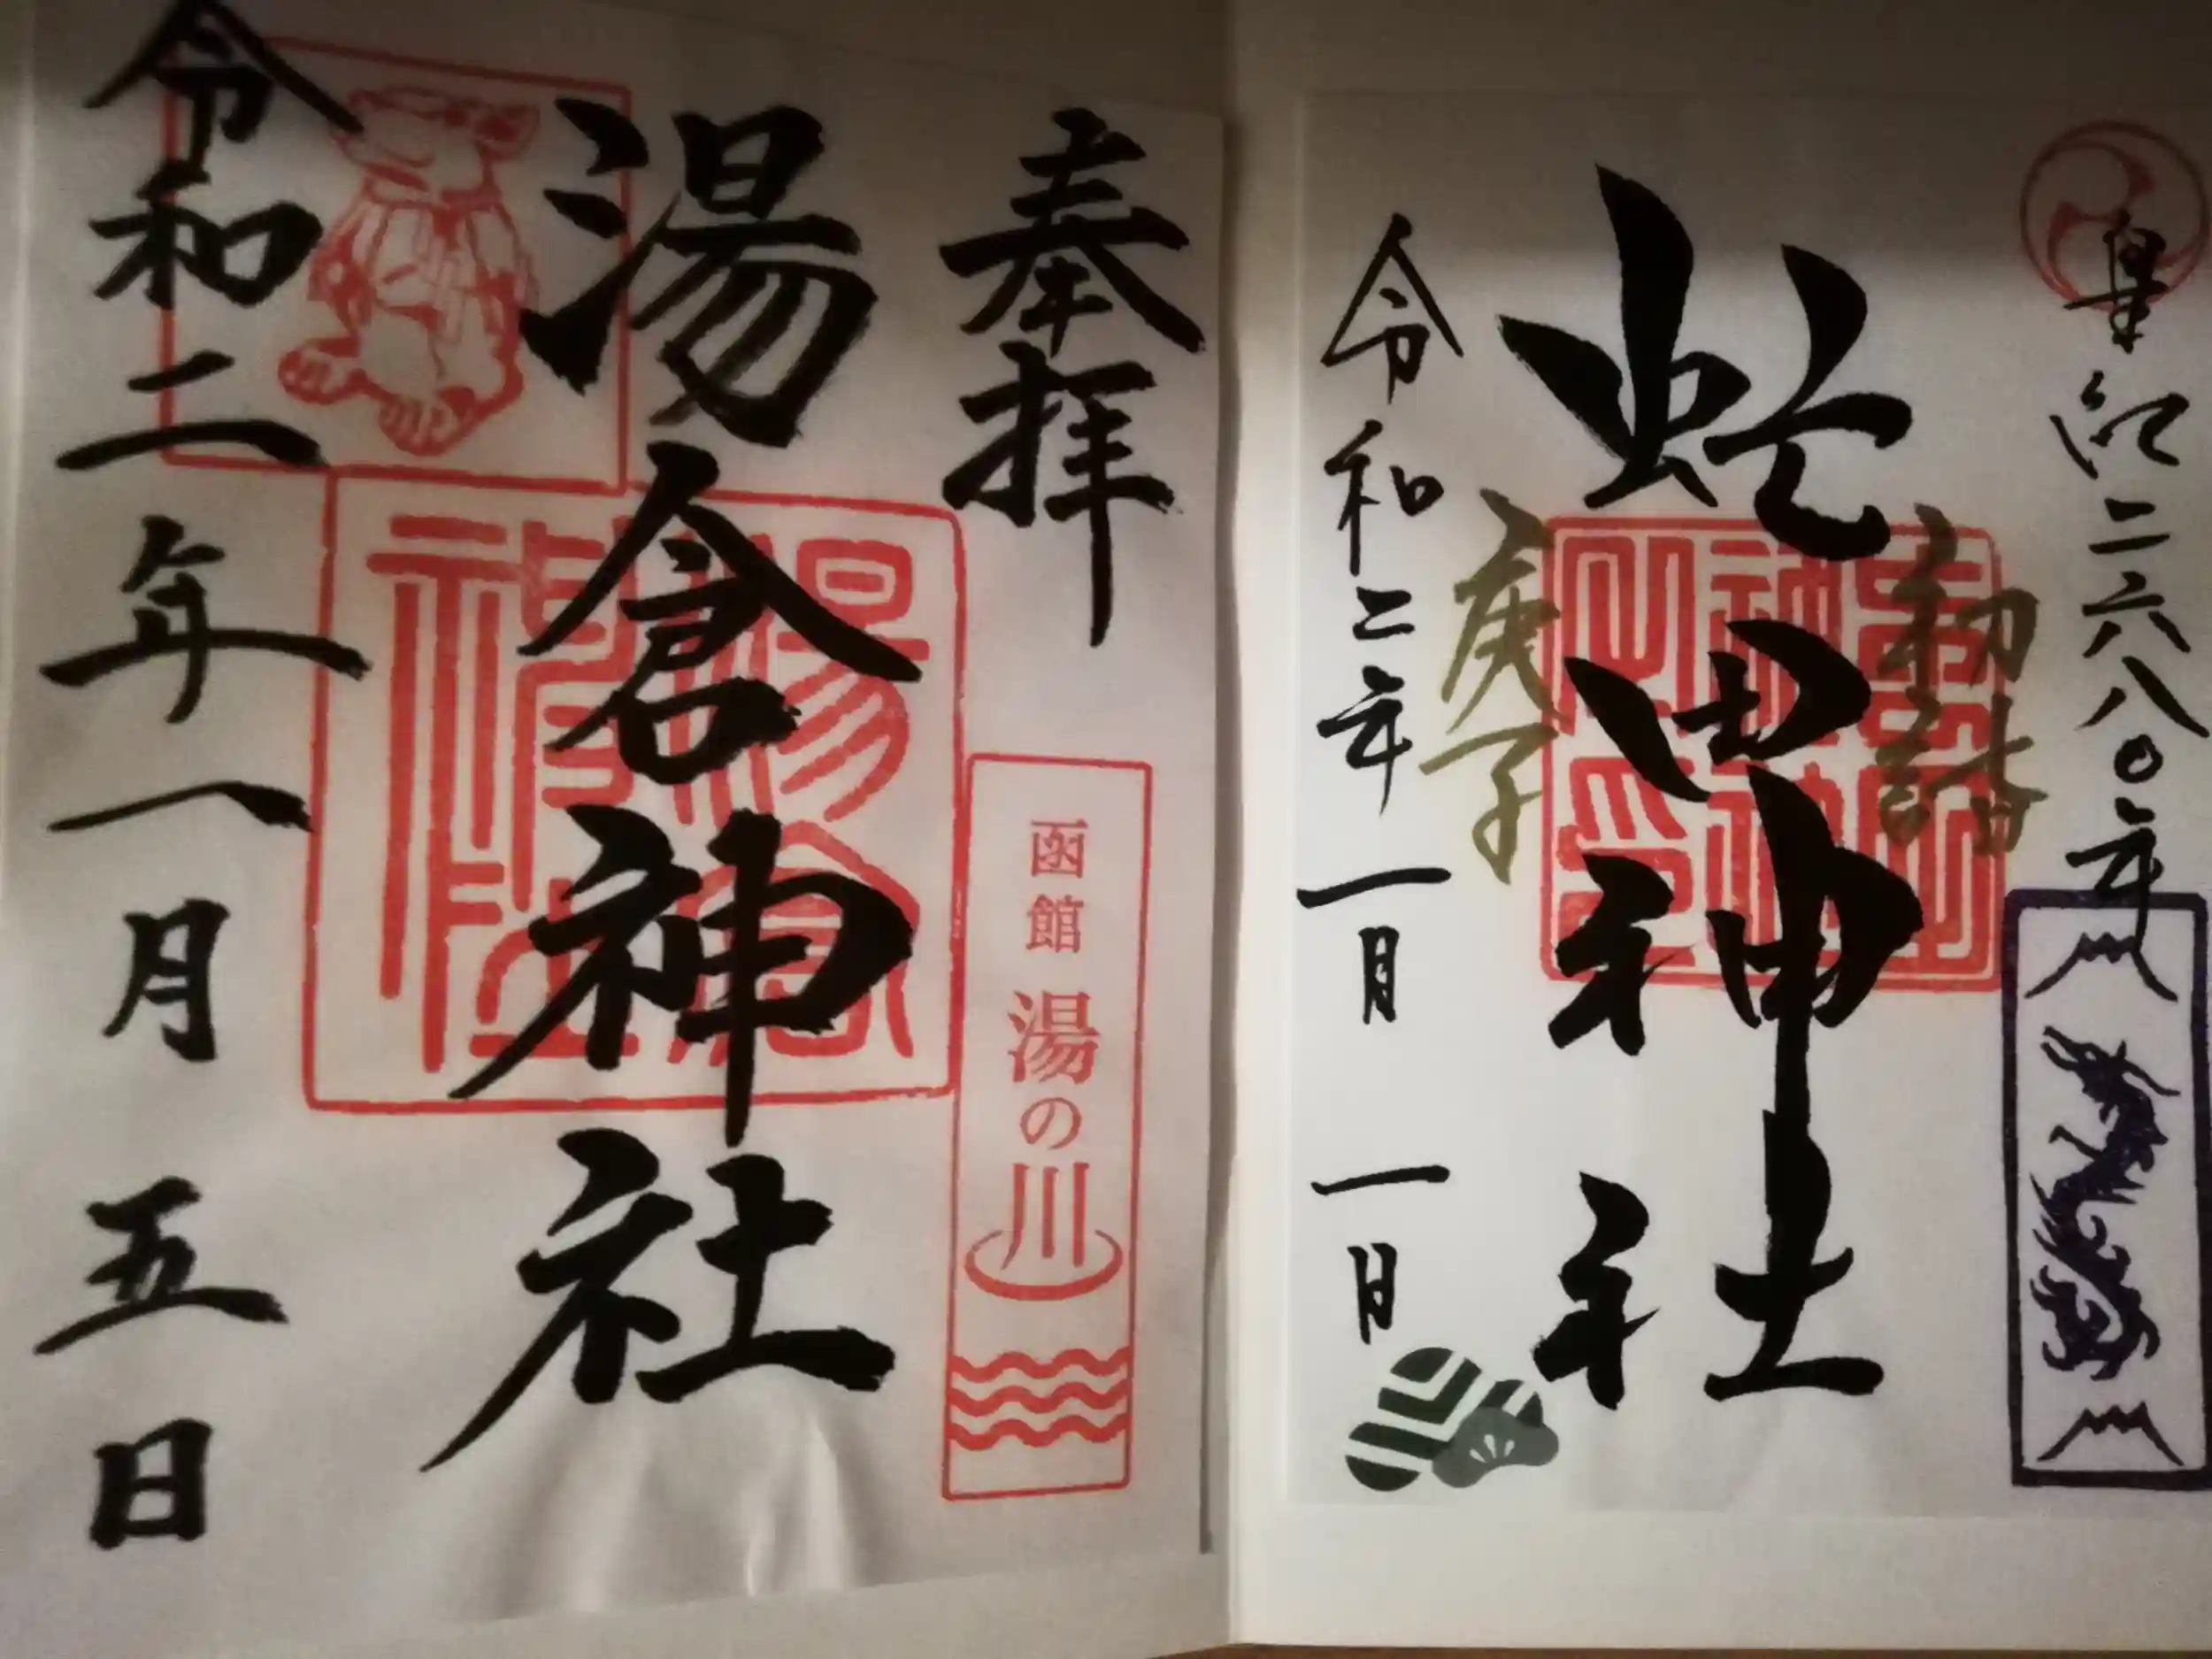 皇紀二六八〇年
初詣
虻田神社
庚子
令和二年一月一日
奉拝
函館 湯の川
湯倉神社
湯倉神社
令和二年一月五日